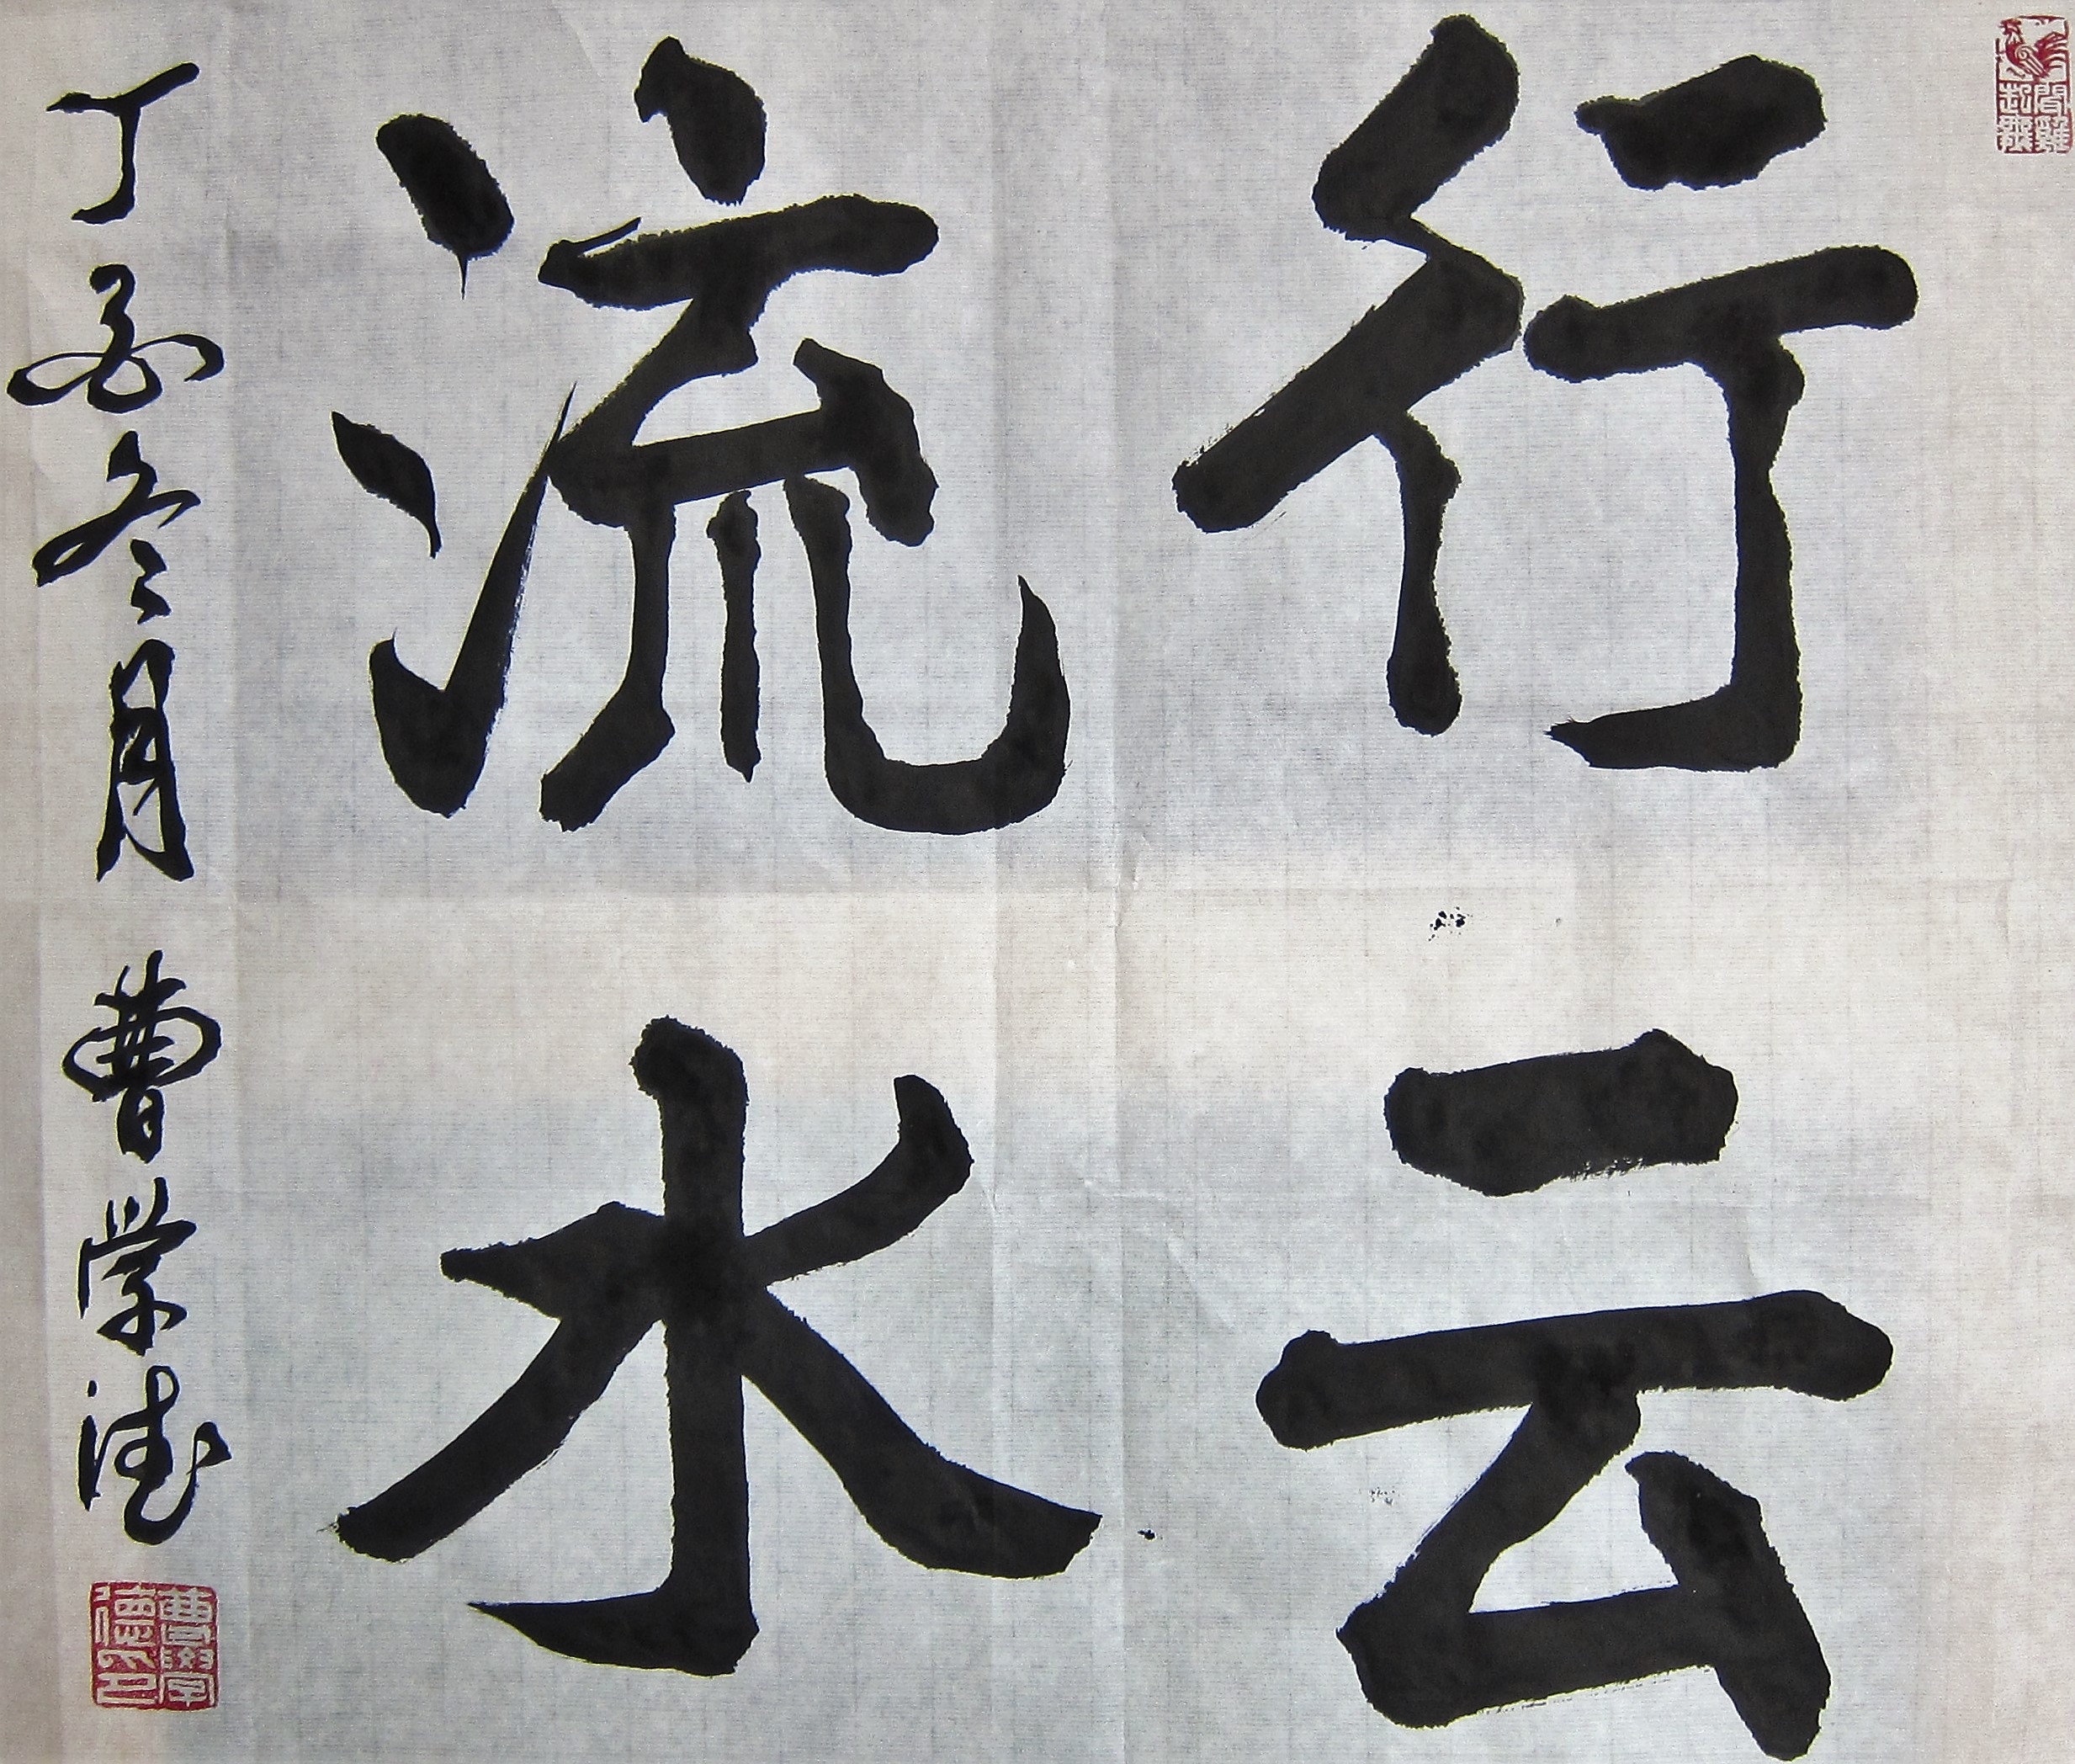 聞雞
起舞
行云
流水
丁酉冬月 曹学德
曹學
德印